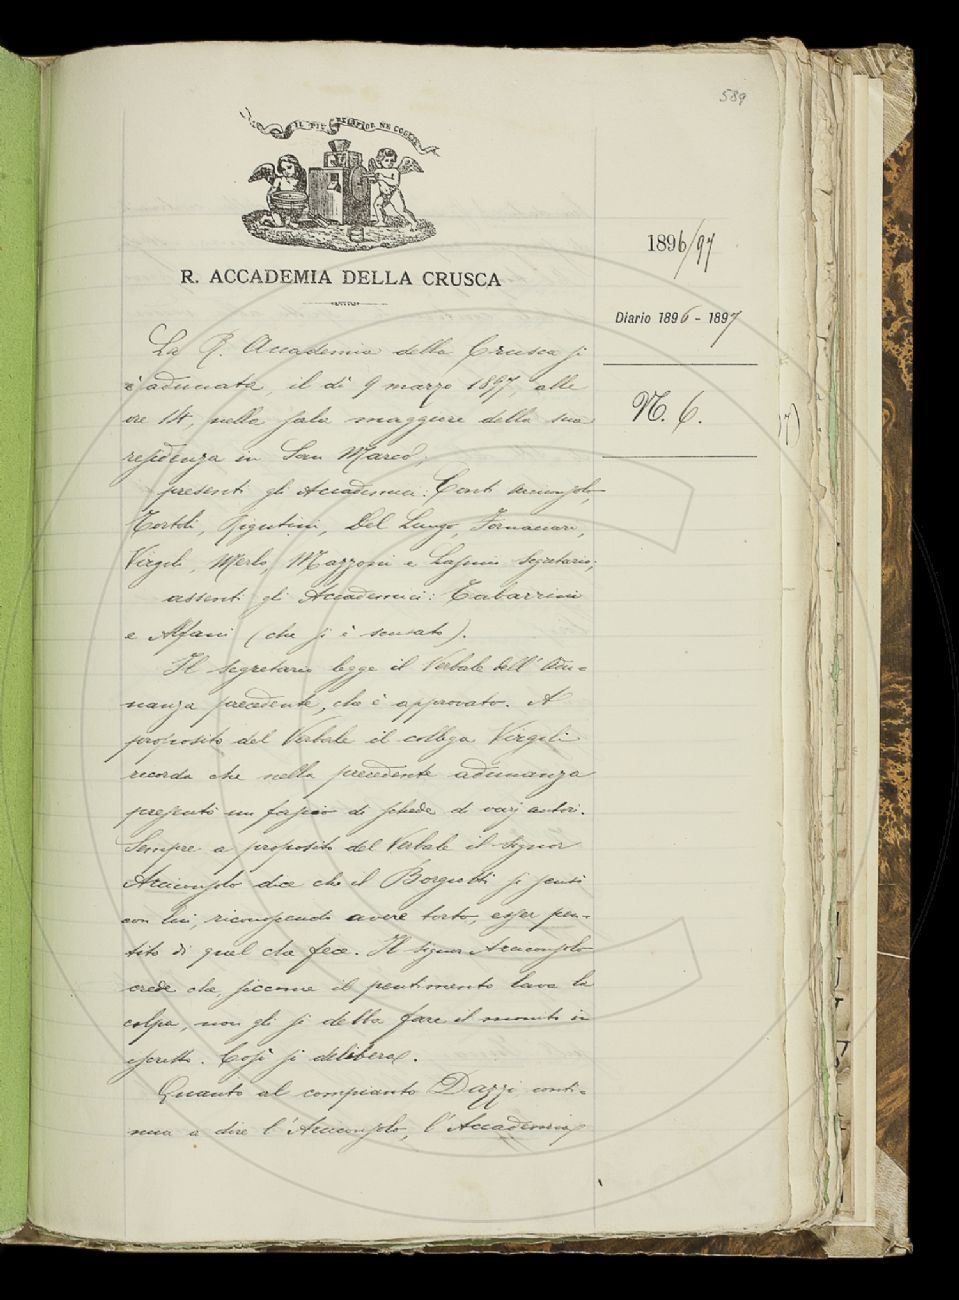 589
IL PIÙ BEL FIOR NE COGLIE
R. ACCADEMIA DELLA CRUSCA
1896/97
Diario 1896 - 1897
N. 6.
La R. Accademia della Crusca si
è adunata, il dì 9 marzo 1897, alle
ore 14, nella sala maggiore della sua
residenza in San Marco;
presenti gli Accademici: Conti arciconsolo,
Tortoli, Rigutini, Del Lungo, Fornaciari,
Virgili, Merlo, Mazzoni e segretario;
assenti gli Accademici: Tabarrini
e Alfani (che si è scusato).
Il segretario legge il Verbale dell'Adu-
nanza precedente, che è approvato. A
proposito del Verbale il collega Virgili
ricorda che nella precedente adunanza
presentò un di schede di varj autori.
Sempre a proposito del Verbale il signor
Arciconsolo dice che il si scusò
con lui, riconoscendo avere torto, esser pen-
tito di quel che fece. Il signor Arciconsolo
crede che, siccome il pentimento lava la
colpa, non gli si debba fare il monito in
iscritto. Così si delibera.
Quanto al compianto Dazzi conti-
nua a dire l'Arciconsolo, l'Accademia